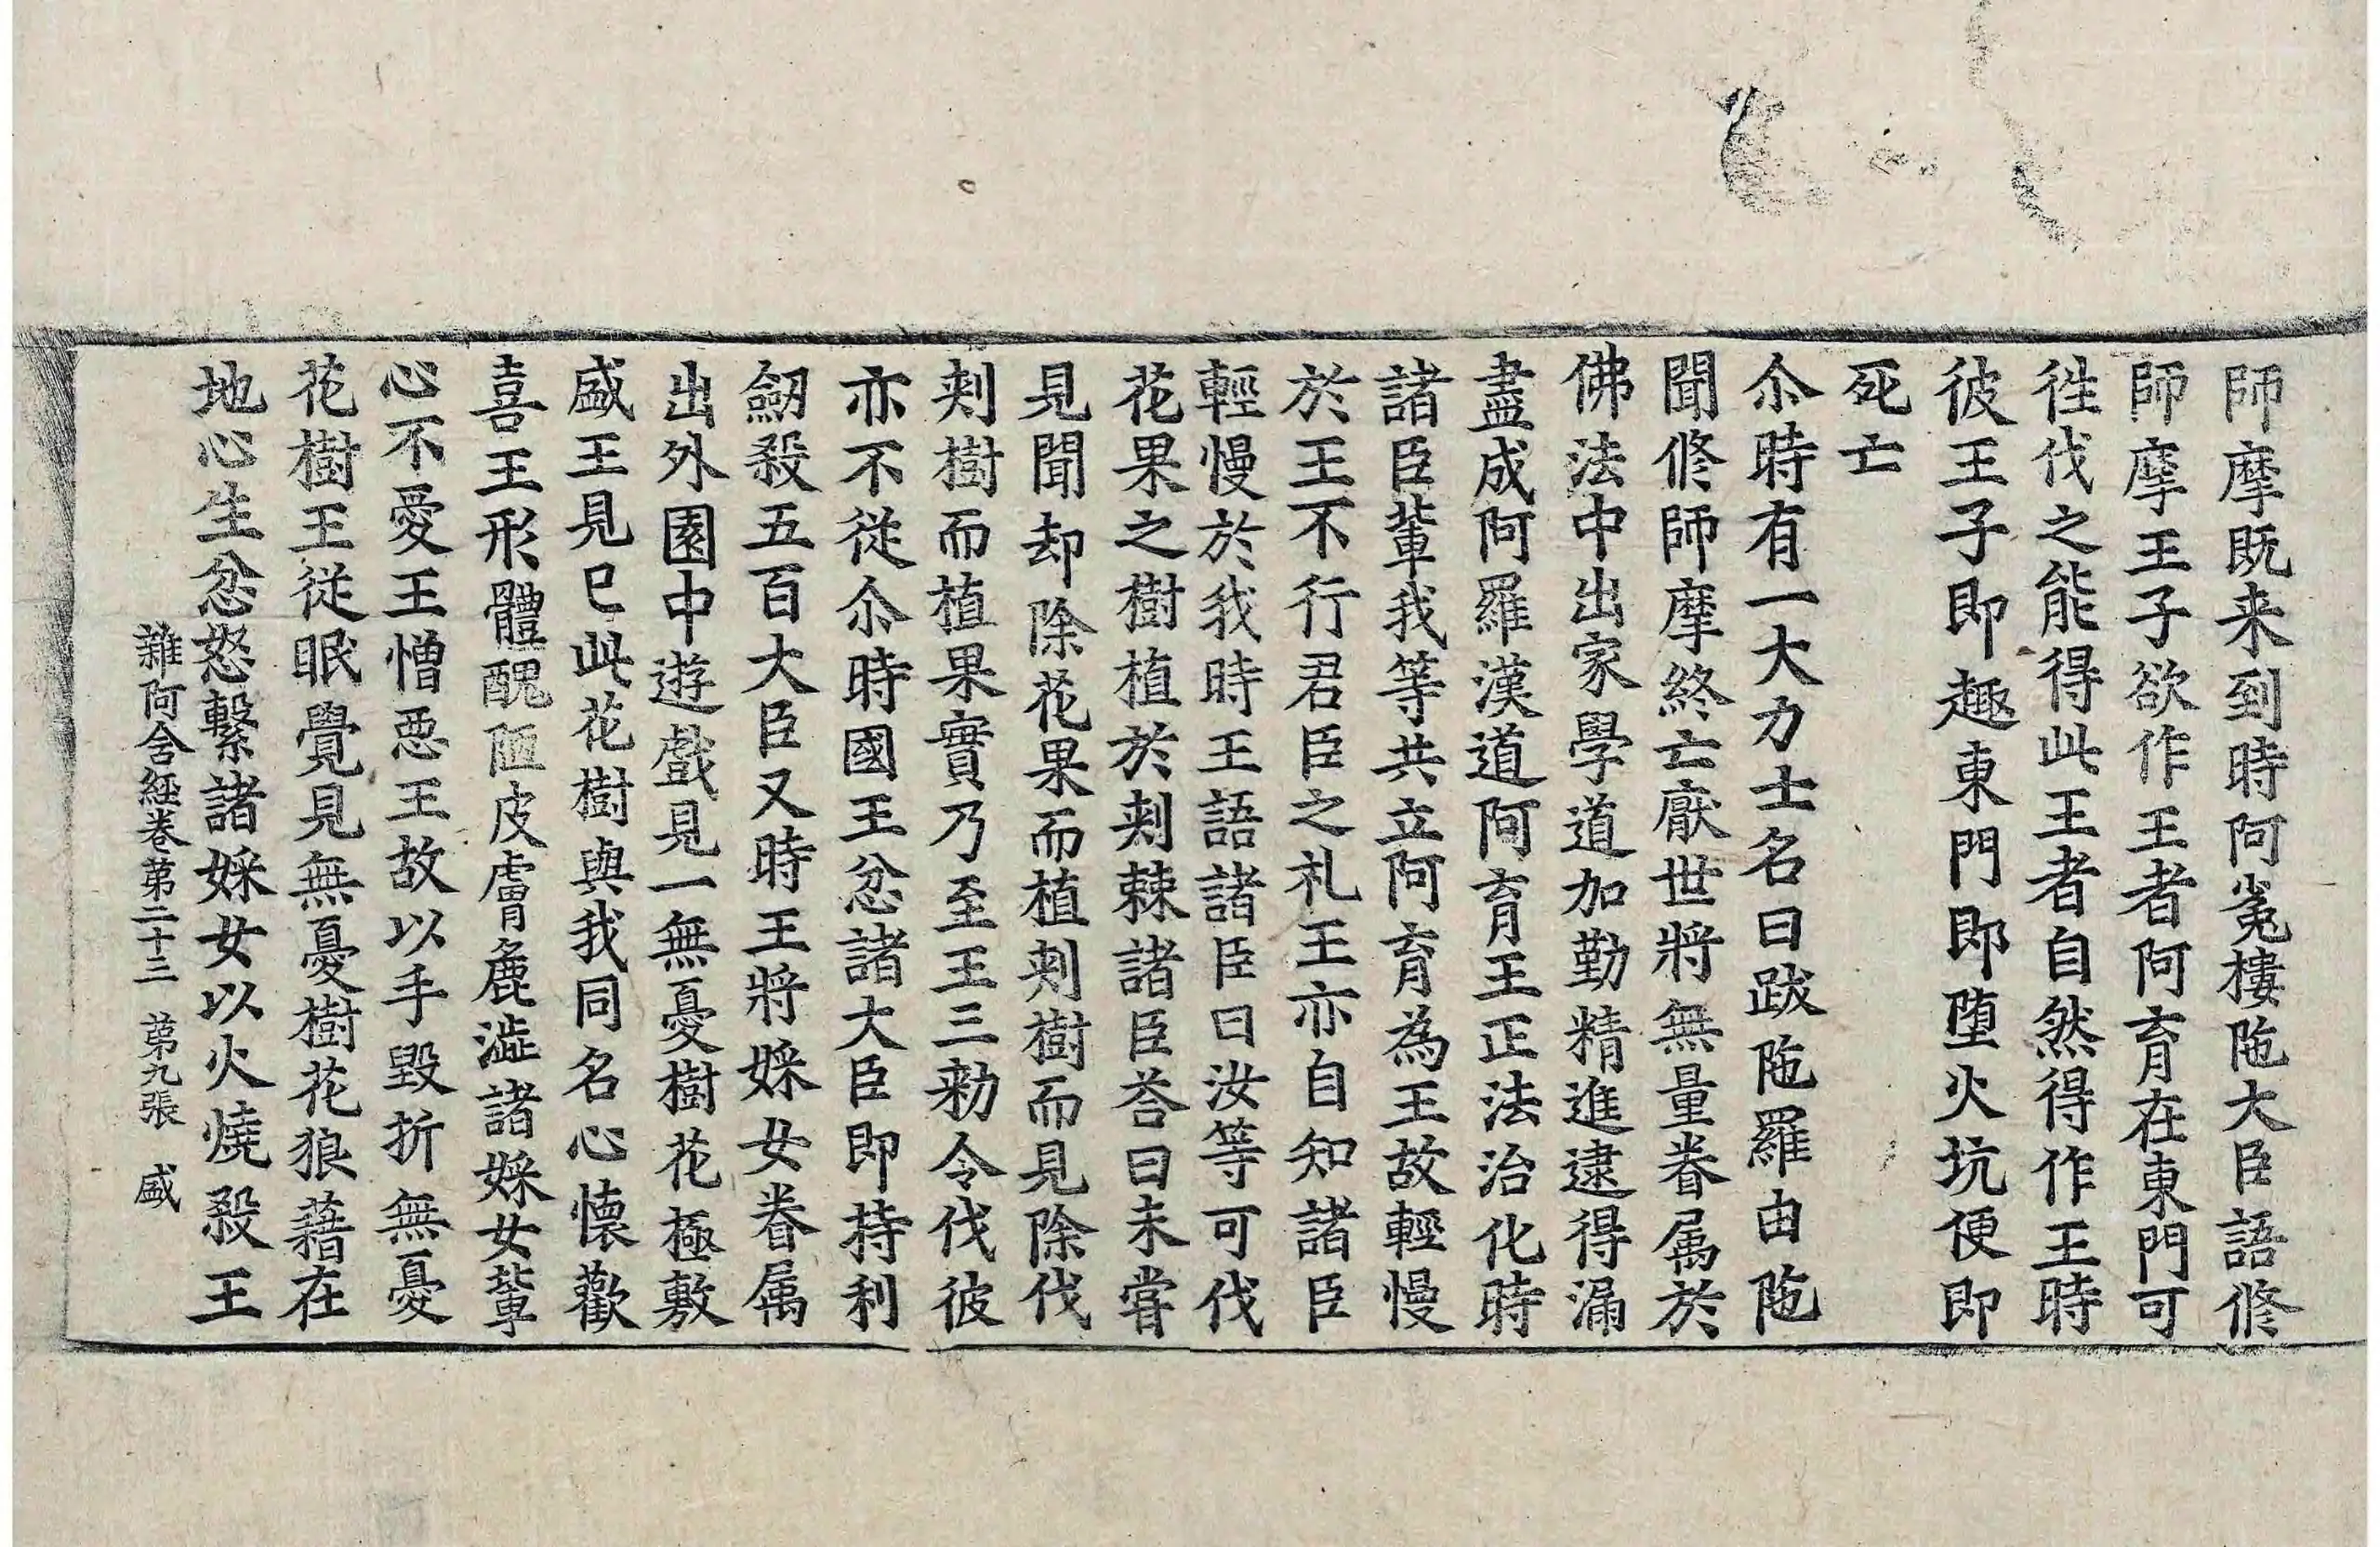 師摩既来到時阿㝹樓陁大臣語修
師摩王子欲作王者阿育在東門可
徃伐之能得此王者自然得作王時
彼王子即趣東門即墮火坑便即
死亡
尒時有一大力士名曰跋陁羅由陁
聞修師摩終亡厭世將無量眷属於
佛法中出家學道加勤精進逮得漏
盡成阿羅漢道阿育王正法治化時
諸臣輩我等共立阿育為王故輕慢
於王不行君臣之礼王亦自知諸臣
輕慢於我時王語諸臣曰汝等可伐
花果之樹植於刾棘諸臣荅曰未嘗
見聞却除花果而植刾樹而見除伐
刾樹而植果實乃至王三勑令伐彼
亦不從尒時國王忿諸大臣即持利
劒殺五百大臣又時王將婇女眷属
出外園中遊戲見一無憂樹花極敷
盛王見已此花樹與我同名心懷歡
喜王形體醜陋皮膚麁澁諸婇女輩
心不愛王憎惡王故以手毀折無憂
花樹王從眠覺見無憂樹花狼藉在
地心生忿怒繫諸婇女以火燒殺王
雜阿含経卷第二十三 第九張 盛